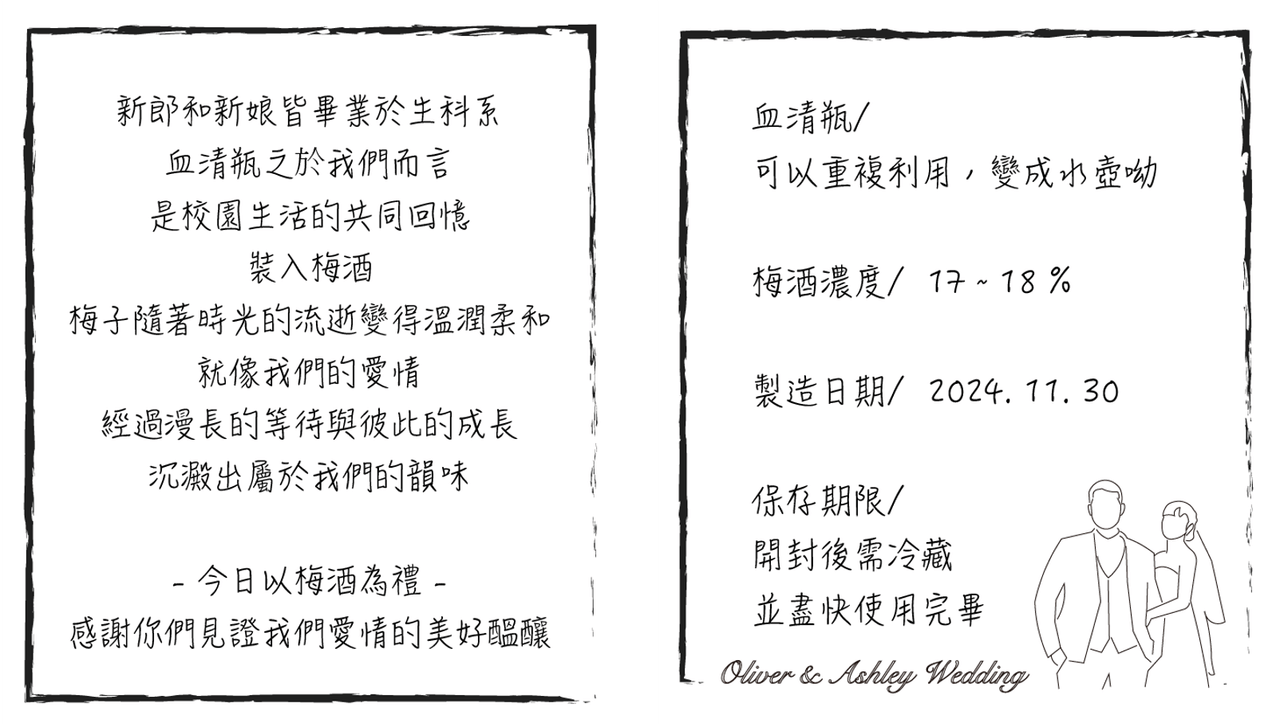 新郎和新娘皆畢業於生科系
血清瓶之於我們而言
是校園生活的共同回憶
裝入梅酒
梅子隨著時光的流逝變得溫潤柔和
就像我們的愛情
經過漫長的等待與彼此的成長
沉澱出屬於我們的韻味
- 今日以梅酒為禮 -
感謝你們見證我們愛情的美好醞釀
血清瓶/
可以重複利用，變成水壺呦
梅酒濃度/ 17~18%
製造日期/ 2024.11.30
保存期限/
開封後需冷藏
並盡快使用完畢
Oliver & Ashley Wedding